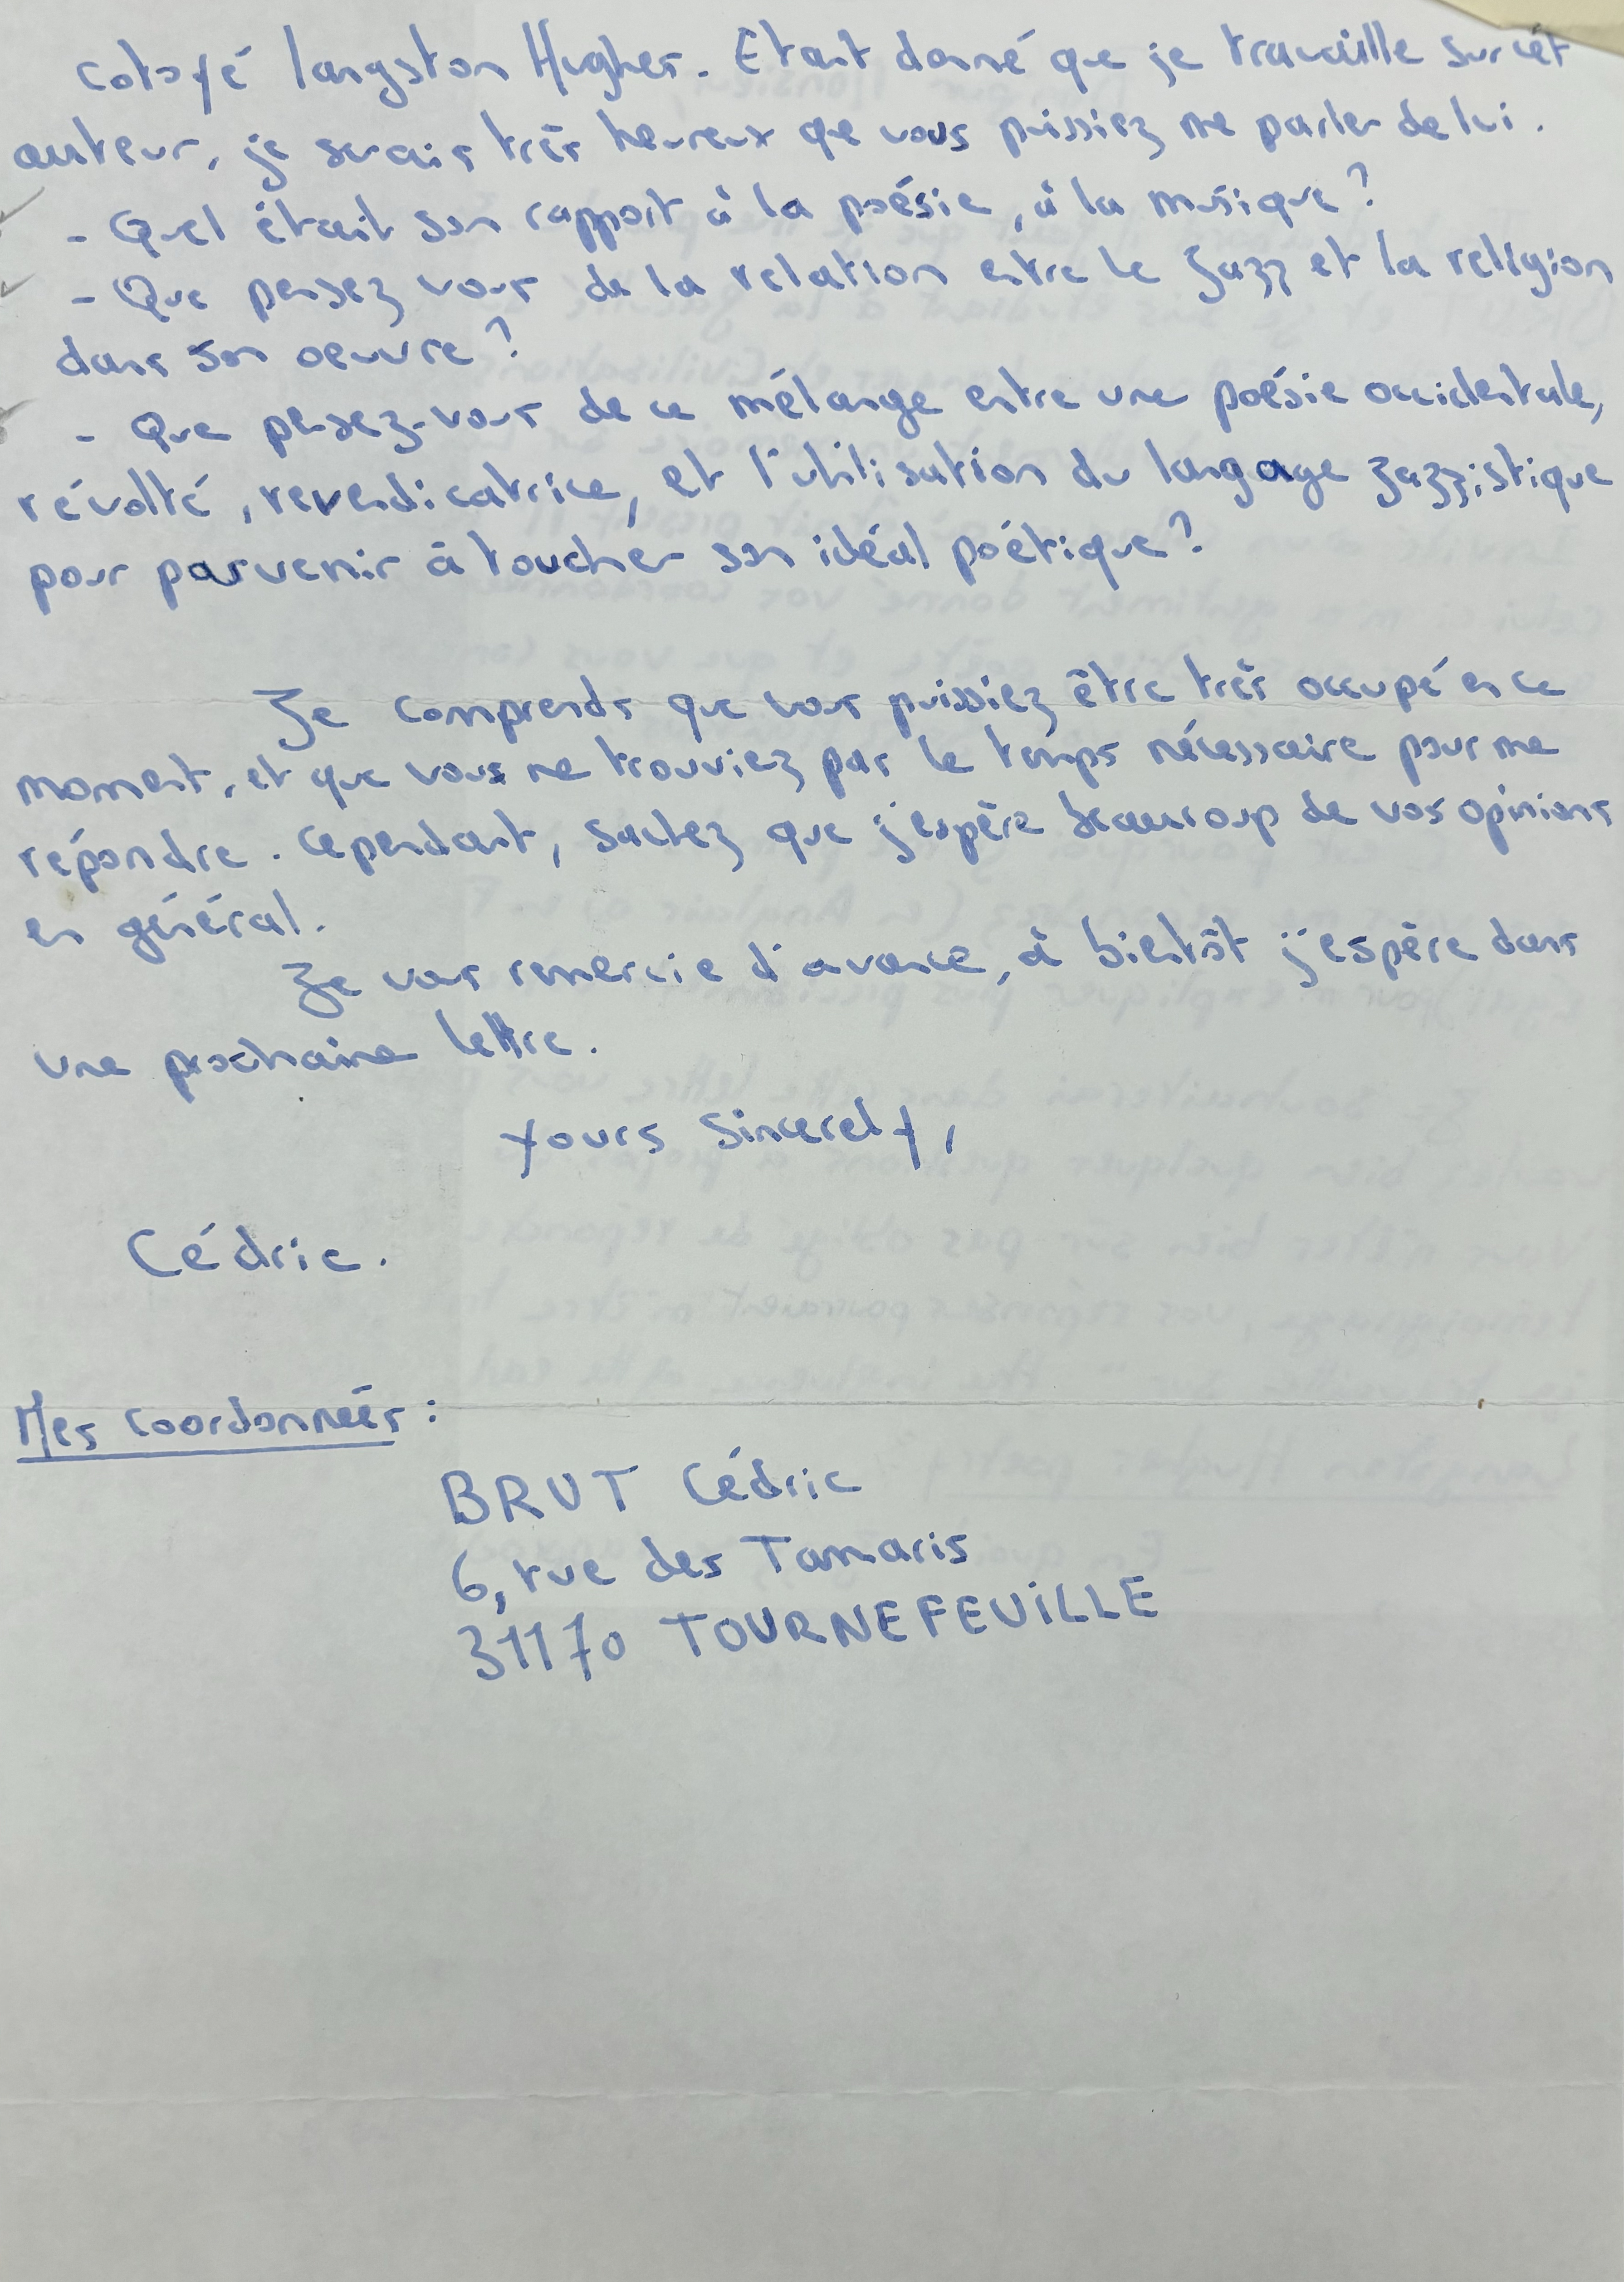 cotoyé Langston Hughes. Etant donné que je travaille sur cet
auteur, je serais très heureux que vous puissiez me parler de lui.
- Quel était son rapport à la poésie, à la musique?
- Que pensez vous de la relation entre le Jazz et la religion
dans son oeuvre?
- Que pensez-vous de ce mélange entre une poésie occidentale,
révolté, revendicatrice, et l'utilisation du langage Jazzistique
pour parvenir à toucher son idéal poétique?
Je comprends que vous puissiez être très occupé en ce
moment, et que vous ne trouviez pas le temps nécessaire pour me
répondre. Cependant, sachez que j'espère beaucoup de vos opinions
en général.
Je vous remercie d'avance, à bientôt j'espère dans
une prochaine lettre.
Yours sincerely,
Cédric.
Mes coordonneés :
BRUT Cédric
6, rue des Tamaris
31170 TOURNEFEUILLE